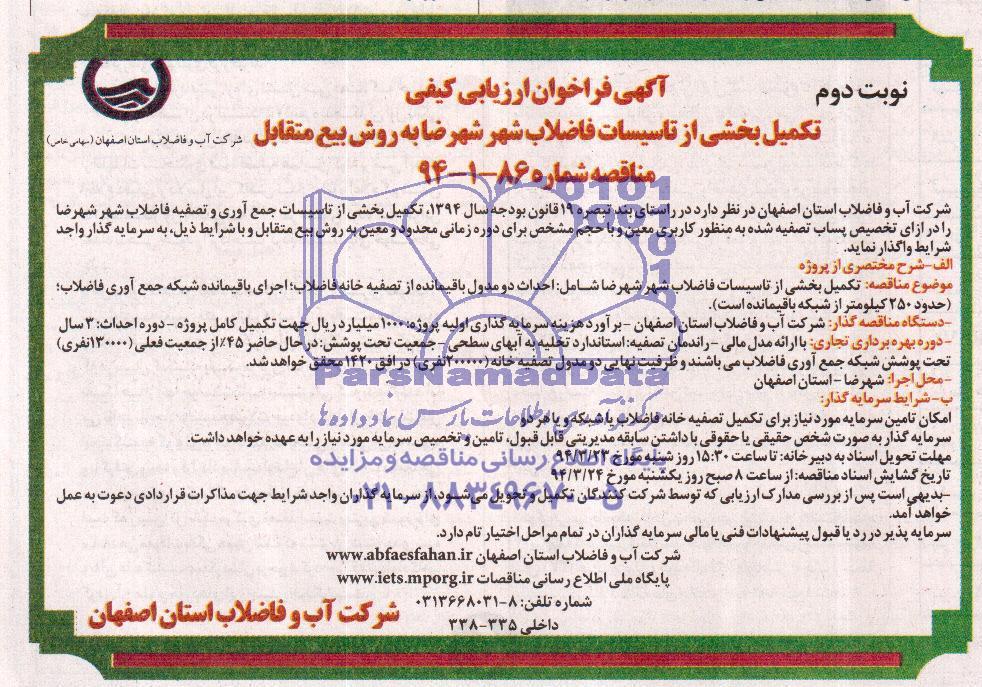 نوبت دوم
آگهی فراخوان ارزیابی کیفی
تکمیل بخشی از تاسیسات فاضلاب شهر شهرضا به روش بیع متقابل
مناقصه شماره ۸۶-۱-۹۴
شرکت آب و فاضلاب استان اصفهان (سهامی خاص)
شرکت آب و فاضلاب استان اصفهان در نظر دارد در راستای بند تبصره ۱۹ قانون بودجه سال ۱۳۹۴، تکمیل بخشی از تاسیسات جمع آوری و تصفیه فاضلاب شهر شهرضا
را در ازای تخصیص پساب تصفیه شده به منظور کاربری معین و با حجم مشخص برای دوره زمانی محدود و معین به روش بیع متقابل و با شرایط ذیل، به سرمایه گذار واجد
شرایط واگذار نماید.
الف-شرح مختصری از پروژه
موضوع مناقصه: تکمیل بخشی از تاسیسات فاضلاب شهر شهرضا شامل: احداث دو مدول باقیمانده از تصفیه خانه فاضلاب؛ اجرای باقیمانده شبکه جمع آوری فاضلاب؛
(حدود ۲۵۰ کیلومتر از شبکه باقیمانده است).
-دستگاه مناقصه گذار: شرکت آب و فاضلاب استان اصفهان - برآورد هزینه سرمایه گذاری اولیه پروژه: ۱۰۰۰ میلیارد ریال جهت تکمیل کامل پروژه - دوره احداث: ۳ سال
-دوره بهره برداری تجاری: با ارائه مدل مالی - راندمان تصفیه: استاندارد تخلیه به آبهای سطحی - جمعیت تحت پوشش: در حال حاضر ۴۵٪ از جمعیت فعلی (۱۳۰۰۰۰نفری)
تحت پوشش شبکه جمع آوری فاضلاب می باشند و ظرفیت نهایی دو مدول تصفیه خانه (۲۰۰۰۰۰نفری) در افق ۱۴۲۰ محقق خواهد شد.
-محل اجرا: شهرضا - استان اصفهان
ب-شرایط سرمایه گذار:
امکان تامین سرمایه مورد نیاز برای تکمیل تصفیه خانه فاضلاب یا شبکه و یا هر دو
سرمایه گذار به صورت شخص حقیقی یا حقوقی با داشتن سابقه مدیریتی قابل قبول، تامین و تخصیص سرمایه مورد نیاز را به عهده خواهد داشت.
مهلت تحویل اسناد به دبیرخانه: تا ساعت ۱۵:۳۰ روز شنبه مورخ ۹۴/۳/۲۳
تاریخ گشایش اسناد مناقصه: از ساعت ۸ صبح روز یکشنبه مورخ ۹۴/۳/۲۴
-بدیهی است پس از بررسی مدارک ارزیابی که توسط شرکت کنندگان تکمیل و تحویل می شود، از سرمایه گذاران واجد شرایط جهت مذاکرات قراردادی دعوت به عمل
خواهد آمد.
سرمایه پذیر در رد یا قبول پیشنهادات فنی یا مالی سرمایه گذاران در تمام مراحل اختیار تام دارد.
شرکت آب و فاضلاب استان اصفهان www.abfaesfahan.ir
پایگاه ملی اطلاع رسانی مناقصات www.iets.mporg.ir
شماره تلفن: ۸-۰۳۱۳۶۶۸۰۳۱
داخلی ۳۳۵-۳۳۸
شرکت آب و فاضلاب استان اصفهان
ParsNamadData
پایگاه اطلاع رسانی مناقصه و مزایده
۰۲۱-۸۸۳۴۹۶۷۰-۵